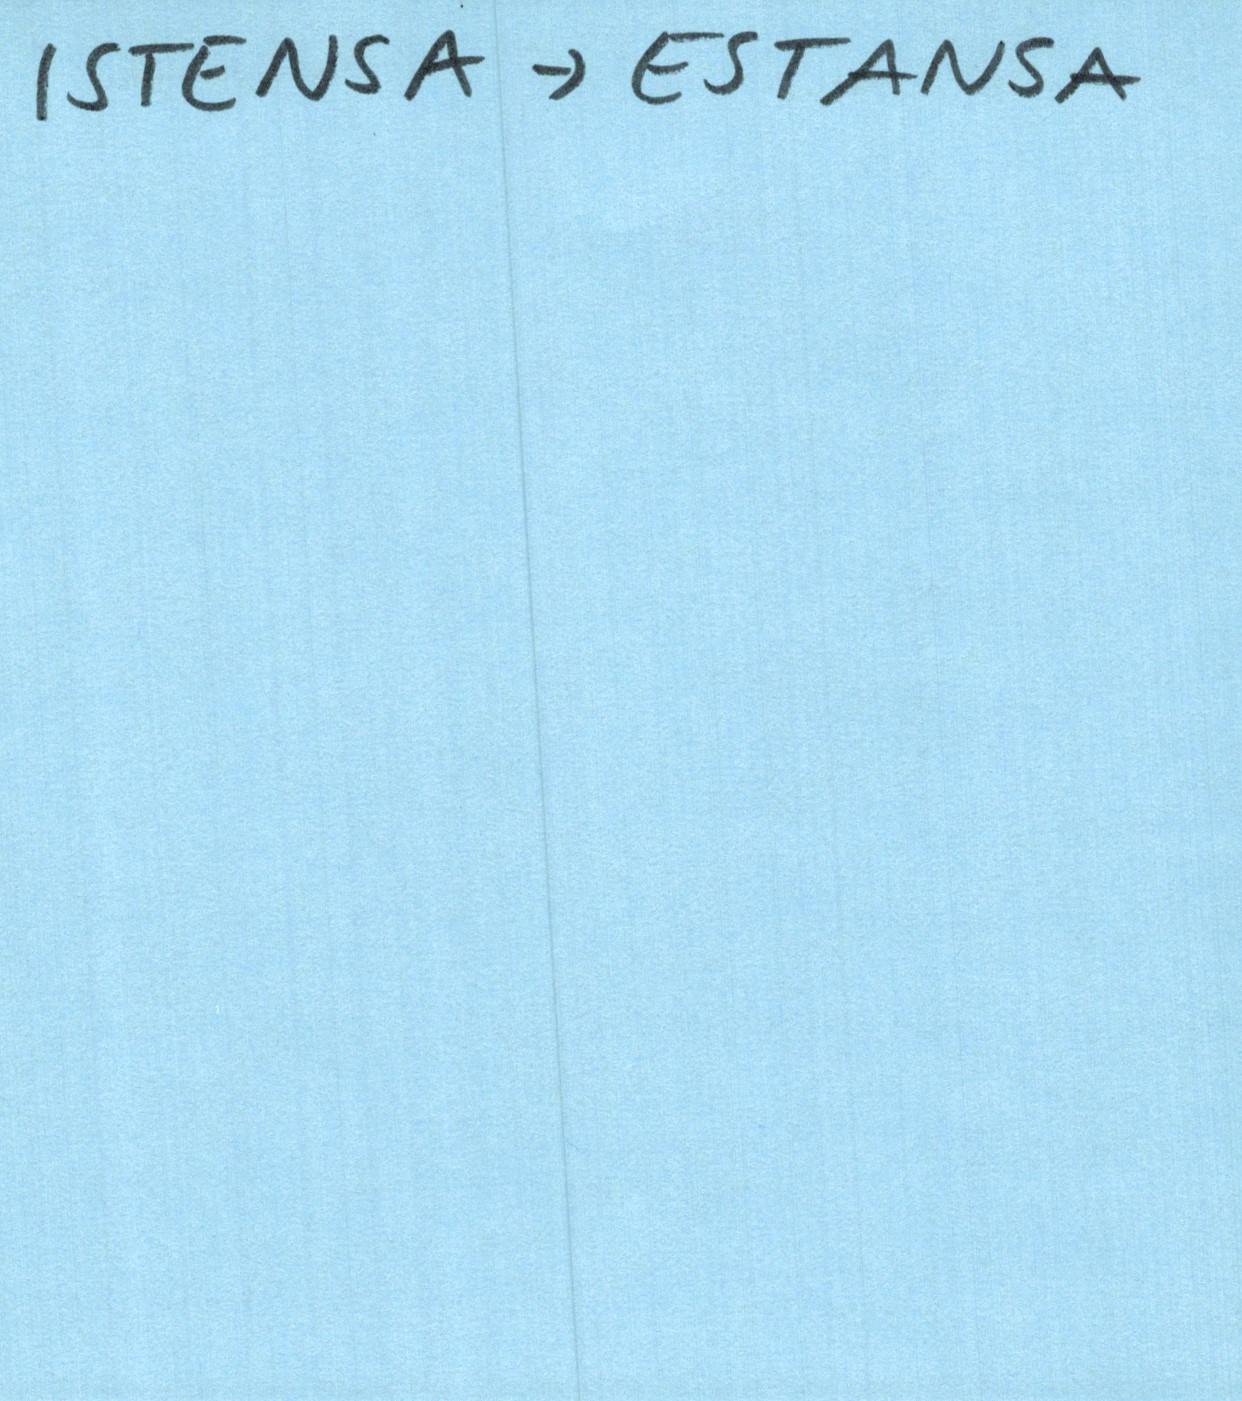 ISTENSA → ESTANSA